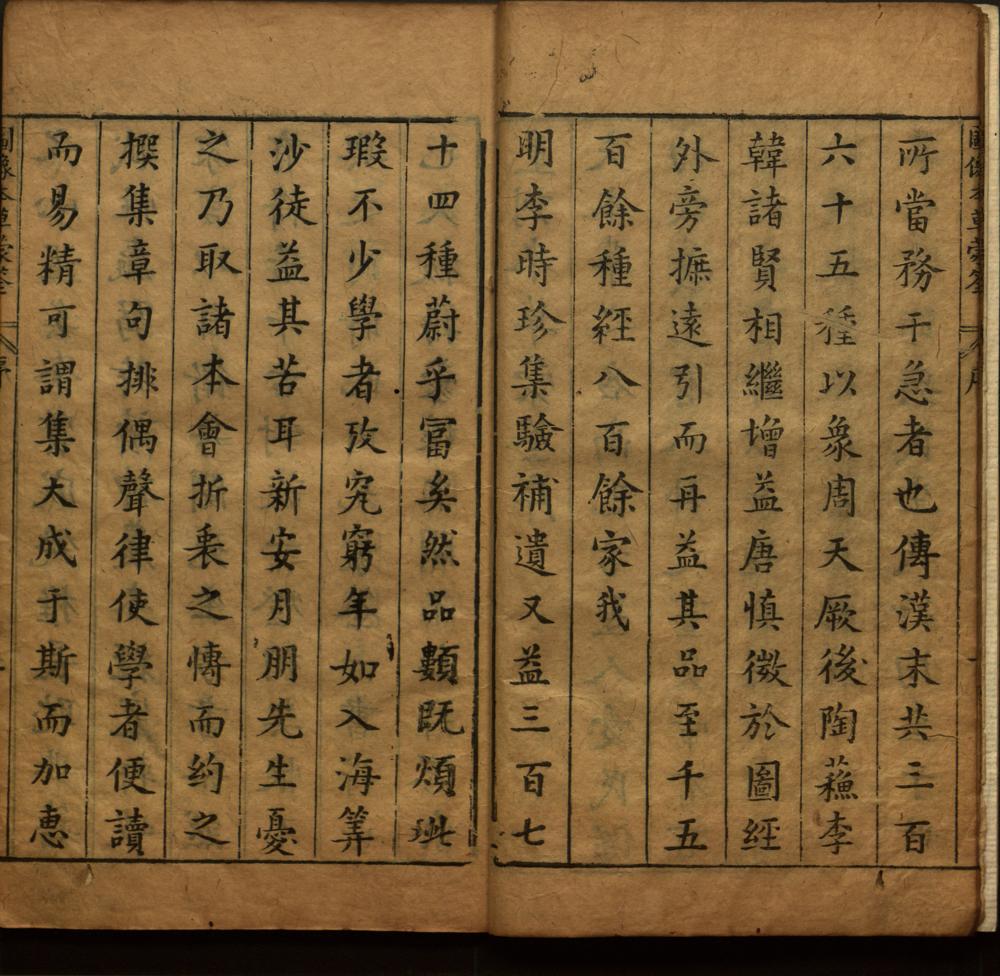 圖像本草蒙筌 序
所當務干急者也傳漢末共三百
六十五種以衆周天厥後陶蘓李
韓諸賢相繼增益唐慎微於圖經
外旁摭遠引而再益其品至千五
百餘種經八百餘家我
明李時珍集驗補遺又益三百七
十四種蔚乎冨矣然品纇既煩玼
瑕不少學者攷究窮年如入海筭
沙徒益其苦耳新安月朋先生憂
之乃取諸本會折衷之慱而约之
撰集章句排偶聲律使學者便讀
而易精可謂集大成于斯而加惠
圖像本草蒙筌 序